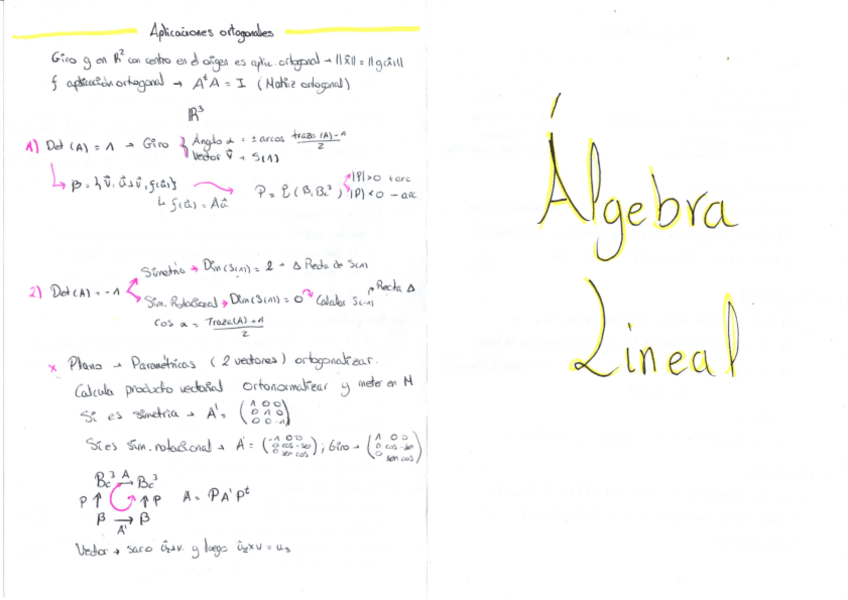 Aplicaciones ortogonales
Giro g en R² con centro en el origen es aplic. ortogonal → ||x̄|| = ||g(x̄)||
f aplicación ortogonal → AᵗA = I (Matriz ortogonal)
R³
1) Det (A) = 1 → Giro { Ángulo α = ± arcos traza(A) - 1 / 2
Vector v⃗ → S(1)
β = {v⃗, u⃗⊥v⃗, f(u⃗)}
↳ f(u⃗) = Au⃗
P = ℰ (B, Bc³)
|P|>0 + arc
|P|<0 - arc
Simetría → Dim(S(1)) = 2 → Δ Recta de S(-1)
2) Det (A) = -1
Sim. Rotacional → Dim(S(1)) = 0 Calculas S(-1) Recta Δ
cos α = Traza(A) + 1 / 2
x Plano → Paramétricas (2 vectores) ortogonalizar.
Calcula producto vectorial ortonormalizar y meter en M
Si es simetría → A' = (1 0 0 / 0 1 0 / 0 0 -1)
Si es sim. rotacional → A' = (-1 0 0 / 0 cos -sen / 0 sen cos) ; Giro → (1 0 0 / 0 cos -sen / 0 sen cos)
Bc³ A→ Bc³
P ↑ ↑ P A = PA'Pᵗ
β → β
A'
Vector → saco u⃗₂⊥v. y luego u⃗₂×v = u₃
Álgebra
Lineal